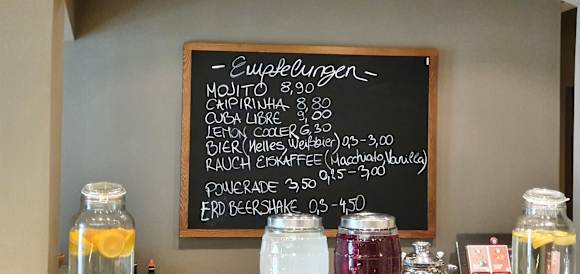 - Empfelungen -
MOJITO 8,90
CAIPIRINHA 8,80
CUBA LIBRE 9,00
LEMON COOLER 6,30
BIER (Helles, Weißbier) 0,3-3,00
RAUCH EISKAFFEE (Macchiato, Vanilla)
0,25-3,00
POWERADE 3,50
ERDBEERSHAKE 0,3-4,50